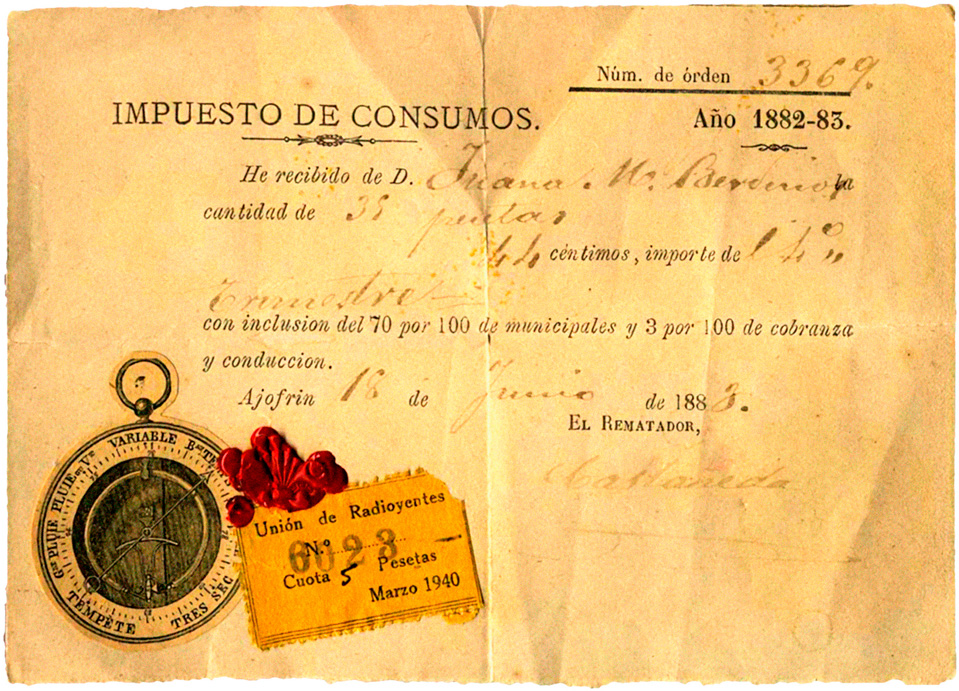 Núm. de órden 3369.
IMPUESTO DE CONSUMOS.
Año 1882-83.
He recibido de D. Juana Mª la
cantidad de 38 pesetas
44 céntimos, importe del 4º
Trimestre
con inclusion del 70 por 100 de municipales y 3 por 100 de cobranza
y conduccion.
Ajofrin 18 de Junio de 1883.
EL REMATADOR,
Castañeda
Gde PLUIE PLUIE ou Vt VARIABLE
TEMPÊTE TRES SEC
Unión de Radioyentes
N.º 6023
Cuota 5 Pesetas
Marzo 1940